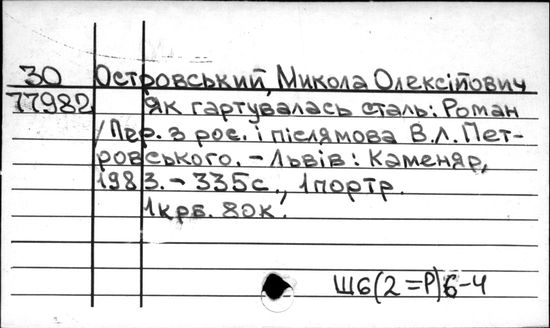 30 Островський, Микола Олексійович
77982 Як гартувалась сталь: Роман
/Пер. з рос. і післямова В.Л. Пет-
ровського. – Львів: Каменяр,
1983. – 335с., 1портр.
1крб. 80к.
Ш6(2=Р)6-4